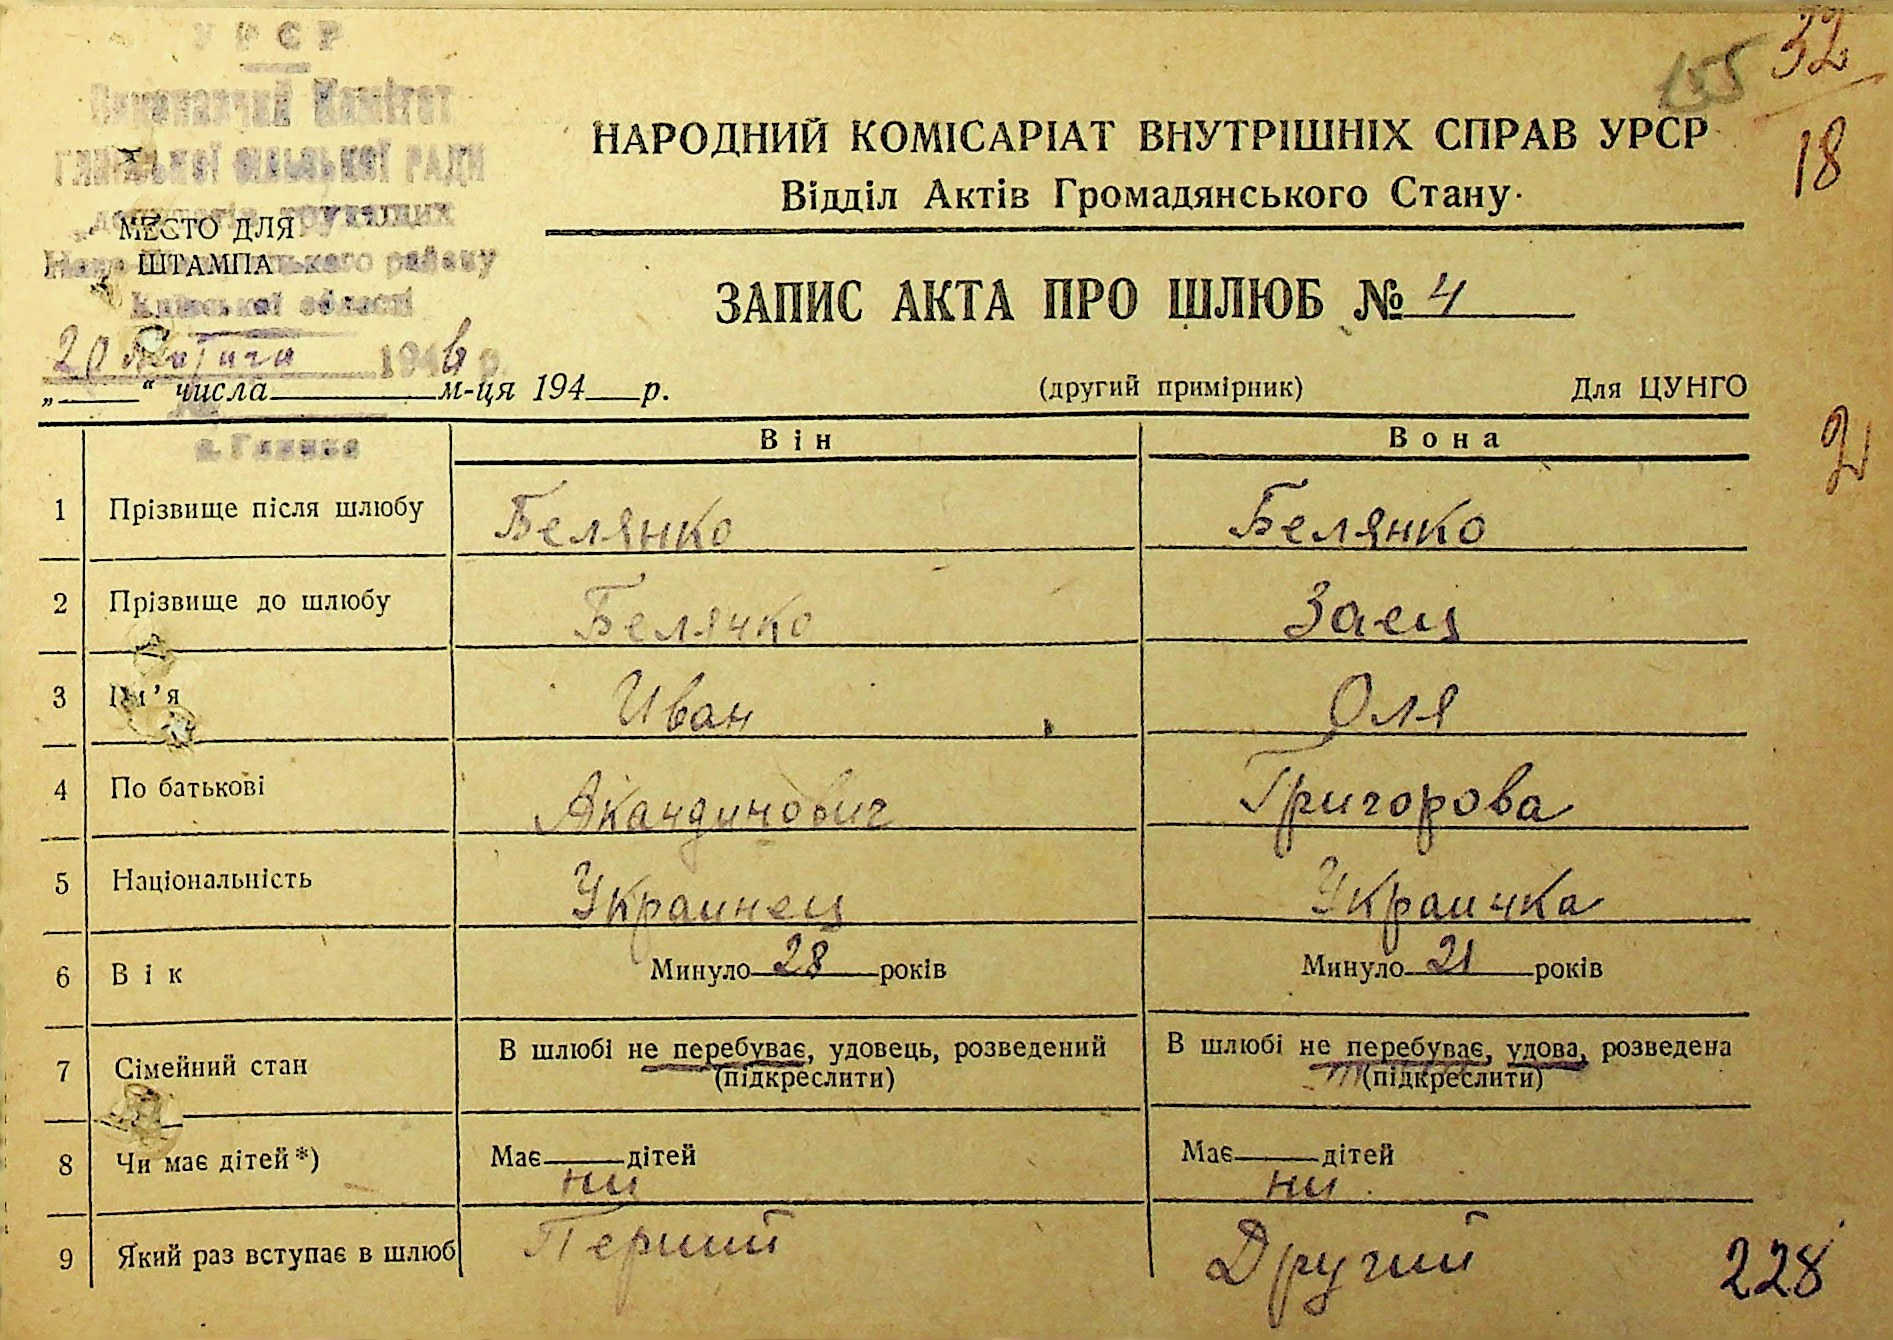 УРСР
Виконавчий Комітет
сільської РАДИ
депутатів трудящих
району
Київської області
20 Лютого 1946 р.
МЕСТО ДЛЯ
ШТАМПА
„ “ числа м-ця 194 р.
с. Глинка
155
32
18
21
НАРОДНИЙ КОМІСАРІАТ ВНУТРІШНІХ СПРАВ УРСР
Відділ Актів Громадянського Стану
ЗАПИС АКТА ПРО ШЛЮБ № 4
(другий примірник) Для ЦУНГО
Він Вона
1 Прізвище після шлюбу Белянко Белянко
2 Прізвище до шлюбу Белянко Заец
3 Ім’я Иван Оля
4 По батькові Акандинович Григорова
5 Національність Украинец Украинка
6 Вік Минуло 28 років Минуло 21 років
7 Сімейний стан В шлюбі не перебуває, удовець, розведений В шлюбі не перебуває, удова, розведена
(підкреслити) (підкреслити)
8 Чи має дітей*) Має дітей Має дітей
ни ни
9 Який раз вступає в шлюб Перший Другий
228